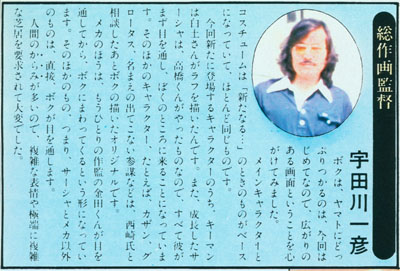 総作画監督
宇田川一彦
ボクは、ヤマトにどっ
ぷりつかるのは、今回は
じめてなので、広がりの
ある画面ということを心
がけてみました。
メインキャラクターと
コスチュームは「新たなる…」のときのものがベース
になっていて、ほとんど同じものです。
今回新たに登場するキャラクターのうち、キーマン
は白土さんがラフを描いたんです。また、成長したサ
ーシャは、高橋くんがやったものなので、すべて彼が
まず目を通し、ぼくのところに来ることになっていま
す。そのほかのキャラクター、たとえば、カザン、グ
ロータス、名まえの出てこない参謀などは、西崎氏と
相談したあとボクの描いたオリジナルです。
メカのほうは、もうひとりの作監の金田くんが目を
通してから、ボクにまわってくるという形になってい
ます。そのほかのもの、つまり、サーシャとメカ以外
のものは、直接、ボクが目を通します。
人間のからみが多いので、複雑な表情や極端に複雑
な芝居を要求されて大変でした。